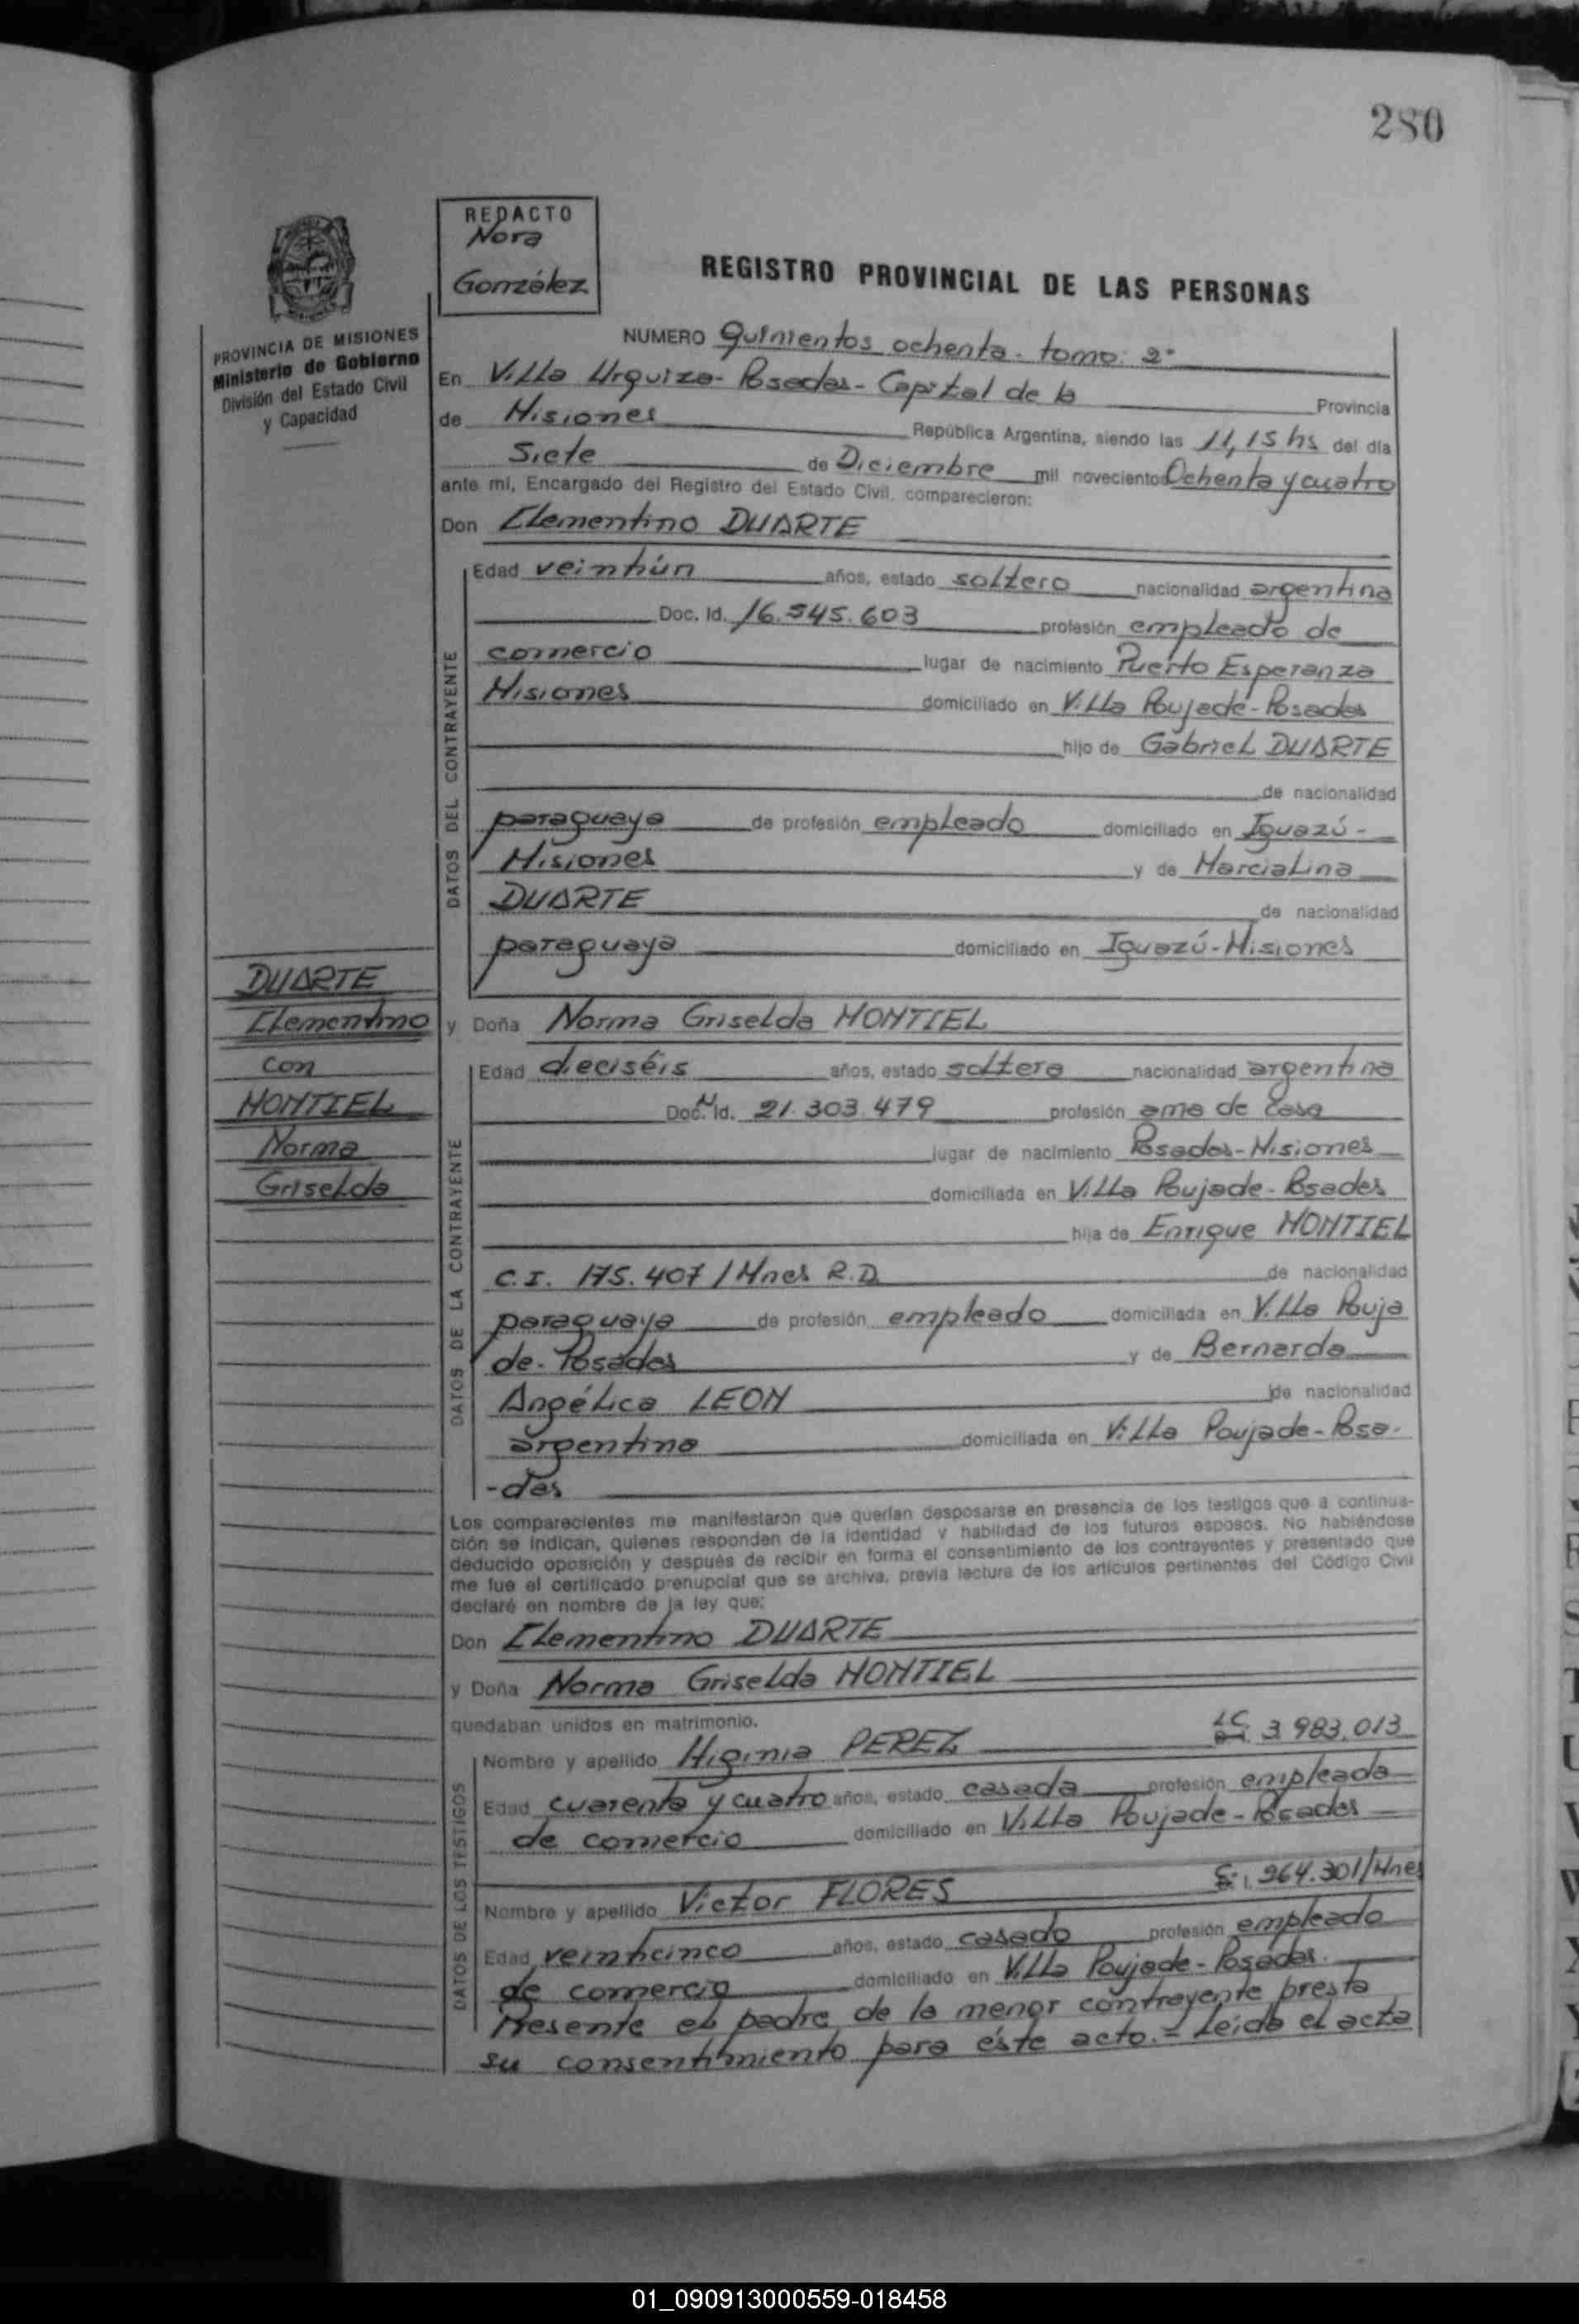 280
REDACTO
Nora
González
REGISTRO PROVINCIAL DE LAS PERSONAS
PROVINCIA DE MISIONES
Ministerio de Gobierno
División del Estado Civil
y Capacidad
NUMERO Quinientos ochenta. tomo: 2°
En Villa Urquiza - Posadas - Capital de la Provincia
de Misiones República Argentina, siendo las 11,15 hs del día
Siete de Diciembre mil novecientos Ochenta y cuatro
ante mí, Encargado del Registro del Estado Civil, comparecieron:
Don Clementino DUARTE
DATOS DEL CONTRAYENTE
Edad veintiún años, estado soltero nacionalidad argentina
Doc. Id. 16.545.603 profesión empleado de
comercio lugar de nacimiento Puerto Esperanza
Misiones domiciliado en Villa Poujade - Posadas
hijo de Gabriel DUARTE
de nacionalidad
paraguaya de profesión empleado domiciliado en Iguazú -
Misiones y de Marcialina
DUARTE de nacionalidad
paraguaya domiciliado en Iguazú - Misiones
DUARTE
Clementino
con
MONTIEL
Norma
Griselda
y Doña Norma Griselda MONTIEL
DATOS DE LA CONTRAYENTE
Edad dieciséis años, estado soltera nacionalidad argentina
Doc. N Id. 21.303.479 profesión ama de casa
lugar de nacimiento Posadas - Misiones
domiciliada en Villa Poujade - Posadas
hija de Enrique MONTIEL
C.I. 175.407/Mnes R.D. de nacionalidad
paraguaya de profesión empleado domiciliada en Villa Pouja
de - Posadas y de Bernarda
Angélica LEON de nacionalidad
argentina domiciliada en Villa Poujade - Posa-
-das
Los comparecientes me manifestaron que querían desposarse en presencia de los testigos que a continua-
ción se indican, quienes responden de la identidad y habilidad de los futuros esposos. No habiéndose
deducido oposición y después de recibir en forma el consentimiento de los contrayentes y presentado que
me fue el certificado prenupcial que se archiva, previa lectura de los artículos pertinentes del Código Civil
declaré en nombre de la ley que:
Don Clementino DUARTE
y Doña Norma Griselda MONTIEL
quedaban unidos en matrimonio.
DATOS DE LOS TESTIGOS
Nombre y apellido Higinia PEREZ LC. 3.983.013
Edad cuarenta y cuatro años, estado casada profesión empleada
de comercio domiciliado en Villa Poujade - Posadas
Nombre y apellido Victor FLORES 264.301/Mnes
Edad veinticinco años, estado casado profesión empleado
de comercio domiciliado en Villa Poujade - Posadas.
Presente el padre de la menor contrayente presta
su consentimiento para éste acto. = Leída el acta
01_090913000559-018458